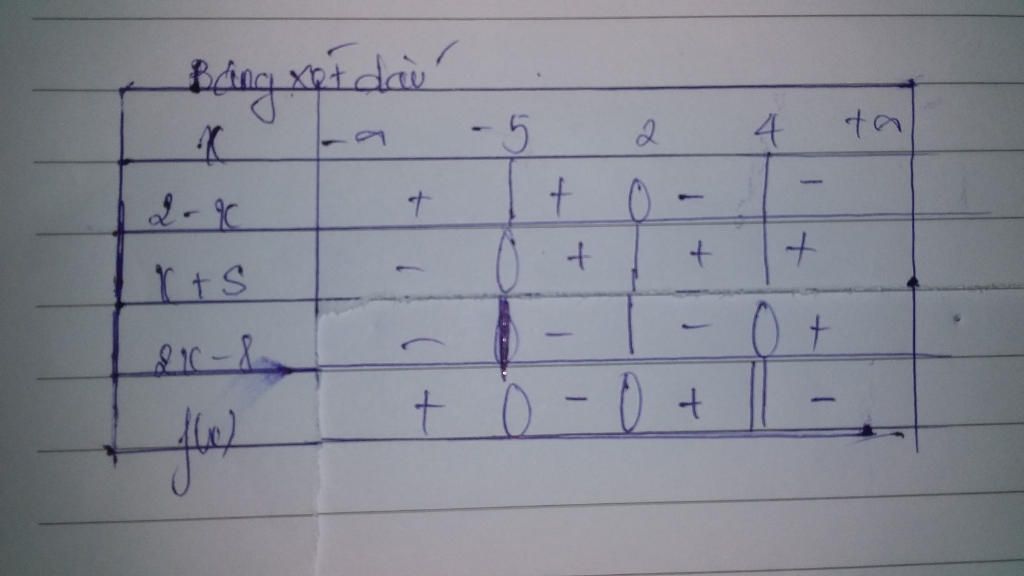 Bảng xét dấu
x -∞ -5 2 4 +∞
2-x + | + 0 - | -
x+5 - 0 + | + | +
2x-8 - | - | - 0 +
f(x) + 0 - 0 + || -